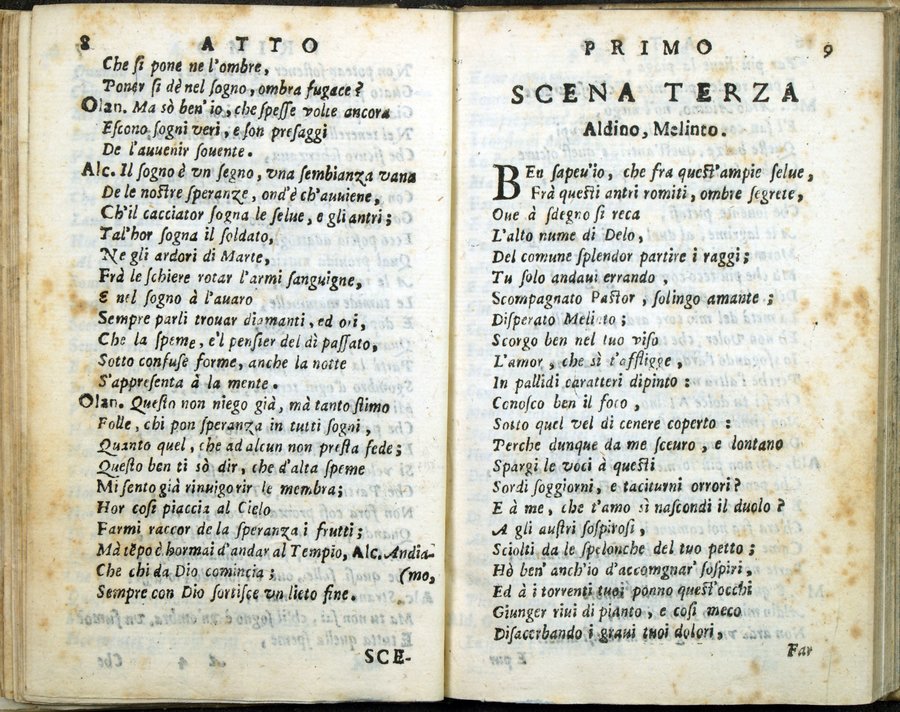 8 ATTO
Che ſi pone ne l'ombre,
Poner ſi dè nel ſogno, ombra fugace?
Olan. Ma sò ben'io, che ſpeſſe volte ancora
Eſcono ſogni veri, e ſon preſaggi
De l'auuenir ſouente.
Alc. Il ſogno è vn ſegno, vna ſembianza vana
De le noſtre ſperanze, ond'è ch'auuiene,
Ch'il cacciator ſogna le ſelue, e gli antri;
Tal'hor ſogna il ſoldato,
Ne gli ardori di Marte,
Frà le ſchiere rotar l'armi ſanguigne,
E nel ſogno à l'auaro
Sempre parli trouar diamanti, ed ori,
Che la ſpeme, e'l penſier del dì paſſato,
Sotto confuſe forme, anche la notte
S'appreſenta à la mente.
Olan. Queſto non niego già, mà tanto ſtimo
Folle, chi pon ſperanza in tutti ſogni,
Quanto quel, che ad alcun non preſta fede;
Queſto ben ti sò dir, che d'alta ſpeme
Mi ſento già rinuigorir le membra;
Hor coſi piaccia al Cielo
Farmi raccor de la ſperanza i frutti;
Mà tẽpo è hormai d'andar al Tempio, Alc. Andia-
Che chi da Dio comincia; (mo,
Sempre con Dio ſortiſce vn lieto fine.
SCE-
PRIMO 9
SCENA TERZA
Aldino, Melinto.
BEn ſapeu'io, che fra queſt'ampie ſelue,
Frà queſti antri romiti, ombre ſegrete,
Oue à ſdegno ſi reca
L'alto nume di Delo,
Del comune ſplendor partire i raggi;
Tu ſolo andaui errando,
Scompagnato Paſtor, ſolingo amante;
Diſperato Melinto;
Scorgo ben nel tuo viſo
L'amor, che sì t'affligge,
In pallidi caratteri dipinto:
Conoſco ben il foco,
Sotto quel vel di cenere coperto:
Perche dunque da me ſceuro, e lontano
Spargi le voci à queſti
Sordi ſoggiorni, e taciturni orrori?
E à me, che t'amo sì naſcondi il duolo?
A gli auſtri ſoſpiroſi,
Sciolti da le ſpelonche del tuo petto;
Hò ben' anch'io d'accomgnar' ſoſpiri,
Ed à i torrenti tuoi ponno queſt'occhi
Giunger riui di pianto, e coſi meco
Diſacerbando i graui tuoi dolori,
Far